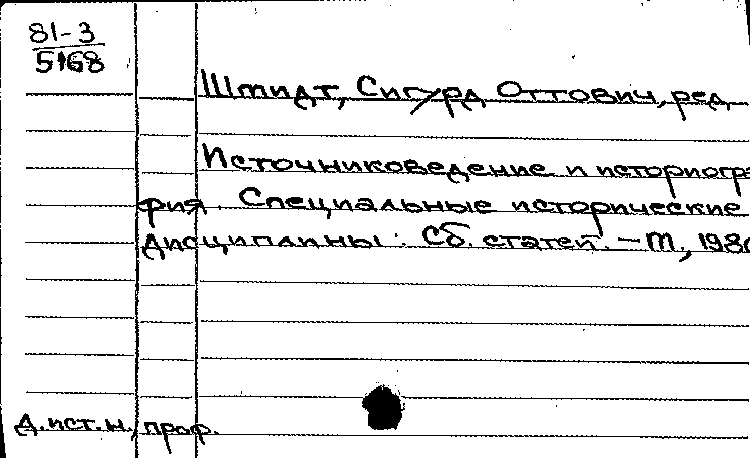 81-3
5168
Шмидт, Сигурд Оттович, ред.
Источниковедение и историогра
фия. Специальные исторические
дисциплины: Сб. статей. – М., 1980
д.ист.н., проф.